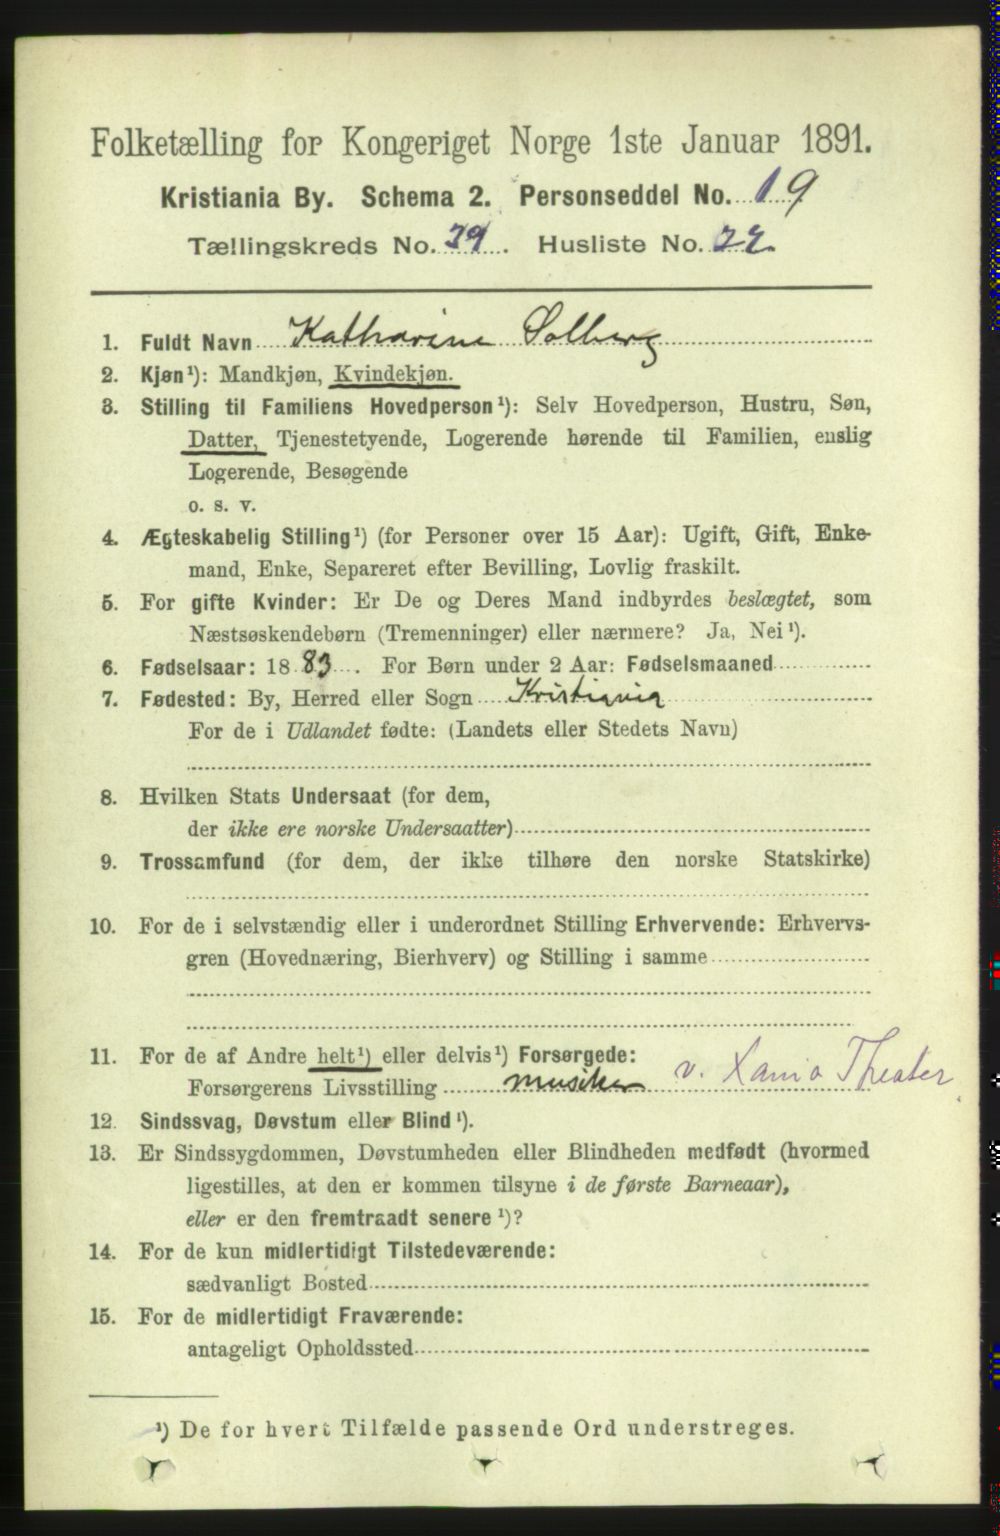 Folketælling for Kongeriget Norge 1ste Januar 1891.
Kristiania By. Schema 2. Personseddel No. 19
Tællingskreds No. 39. Husliste No. 22
1. Fuldt Navn Katharine Solberg
2. Kjøn¹): Mandkjøn, Kvindekjøn.
3. Stilling til Familiens Hovedperson¹): Selv Hovedperson, Hustru, Søn,
Datter, Tjenestetyende, Logerende hørende til Familien, enslig
Logerende, Besøgende
o. s. v.
4. Ægteskabelig Stilling¹) (for Personer over 15 Aar): Ugift, Gift, Enke-
mand, Enke, Separeret efter Bevilling, Lovlig fraskilt.
5. For gifte Kvinder: Er De og Deres Mand indbyrdes beslægtet, som
Næstsøskendebørn (Tremenninger) eller nærmere? Ja, Nei¹).
6. Fødselsaar: 1883. For Børn under 2 Aar: Fødselsmaaned
7. Fødested: By, Herred eller Sogn Kristiania
For de i Udlandet fødte: (Landets eller Stedets Navn)
8. Hvilken Stats Undersaat (for dem,
der ikke ere norske Undersaatter)
9. Trossamfund (for dem, der ikke tilhøre den norske Statskirke)
10. For de i selvstændig eller i underordnet Stilling Erhvervende: Erhvervs-
gren (Hovednæring, Bierhverv) og Stilling i samme
11. For de af Andre helt¹) eller delvis¹) Forsørgede:
Forsørgerens Livsstilling musiker v. Xania Theater
12. Sindssvag, Døvstum eller Blind¹).
13. Er Sindssygdommen, Døvstumheden eller Blindheden medfødt (hvormed
ligestilles, at den er kommen tilsyne i de første Barneaar),
eller er den fremtraadt senere¹)?
14. For de kun midlertidigt Tilstedeværende:
sædvanligt Bosted
15. For de midlertidigt Fraværende:
antageligt Opholdssted
¹) De for hvert Tilfælde passende Ord understreges.